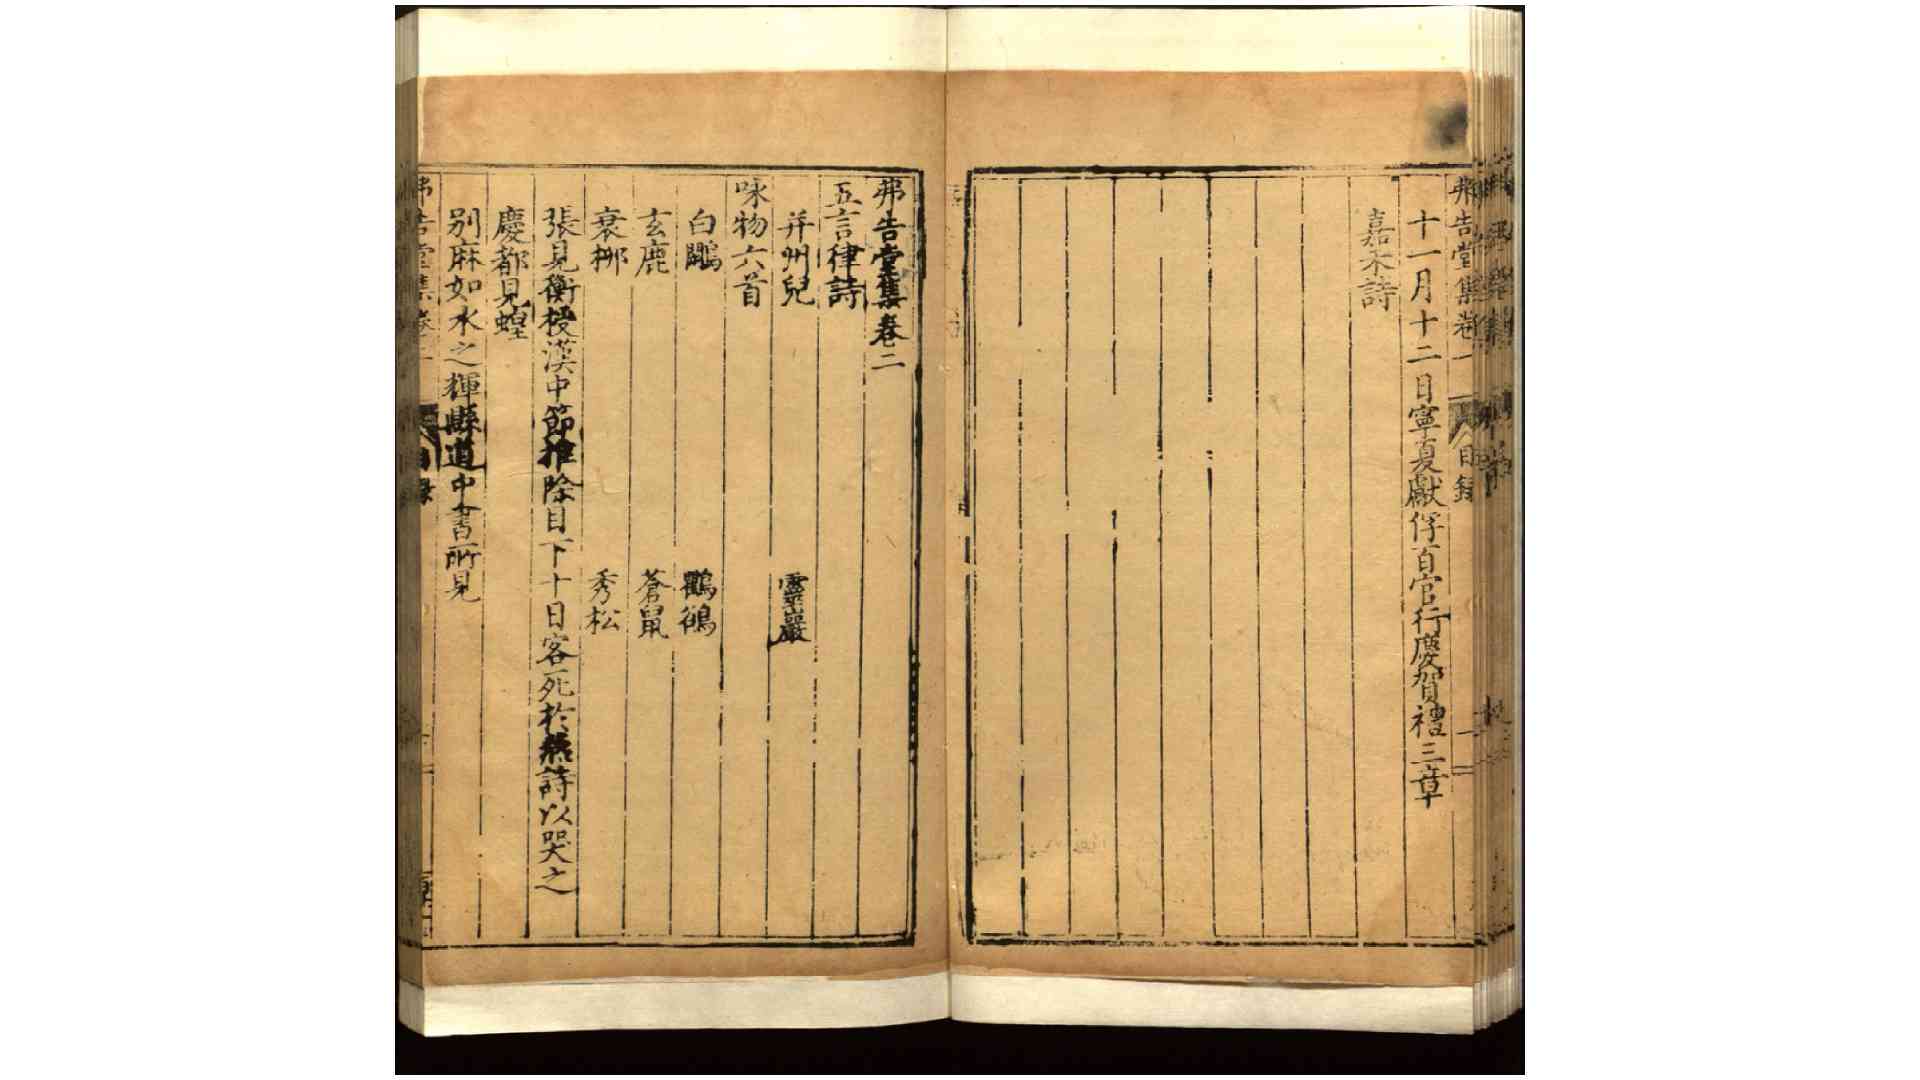 弗告堂集卷一 目録
十一月十二日寧夏獻俘百官行慶賀禮三章
嘉禾詩
弗告堂集卷二
五言律詩
并州兒 靈巖
咏物六首
白鷳 鸜鵒
玄鹿 蒼鼠
衰栁 秀松
張見衡授漢中節推除目下十日客死於燕詩以哭之
慶都見蝗
別麻如水之輝縣道中書所見
弗告堂集卷二 目録